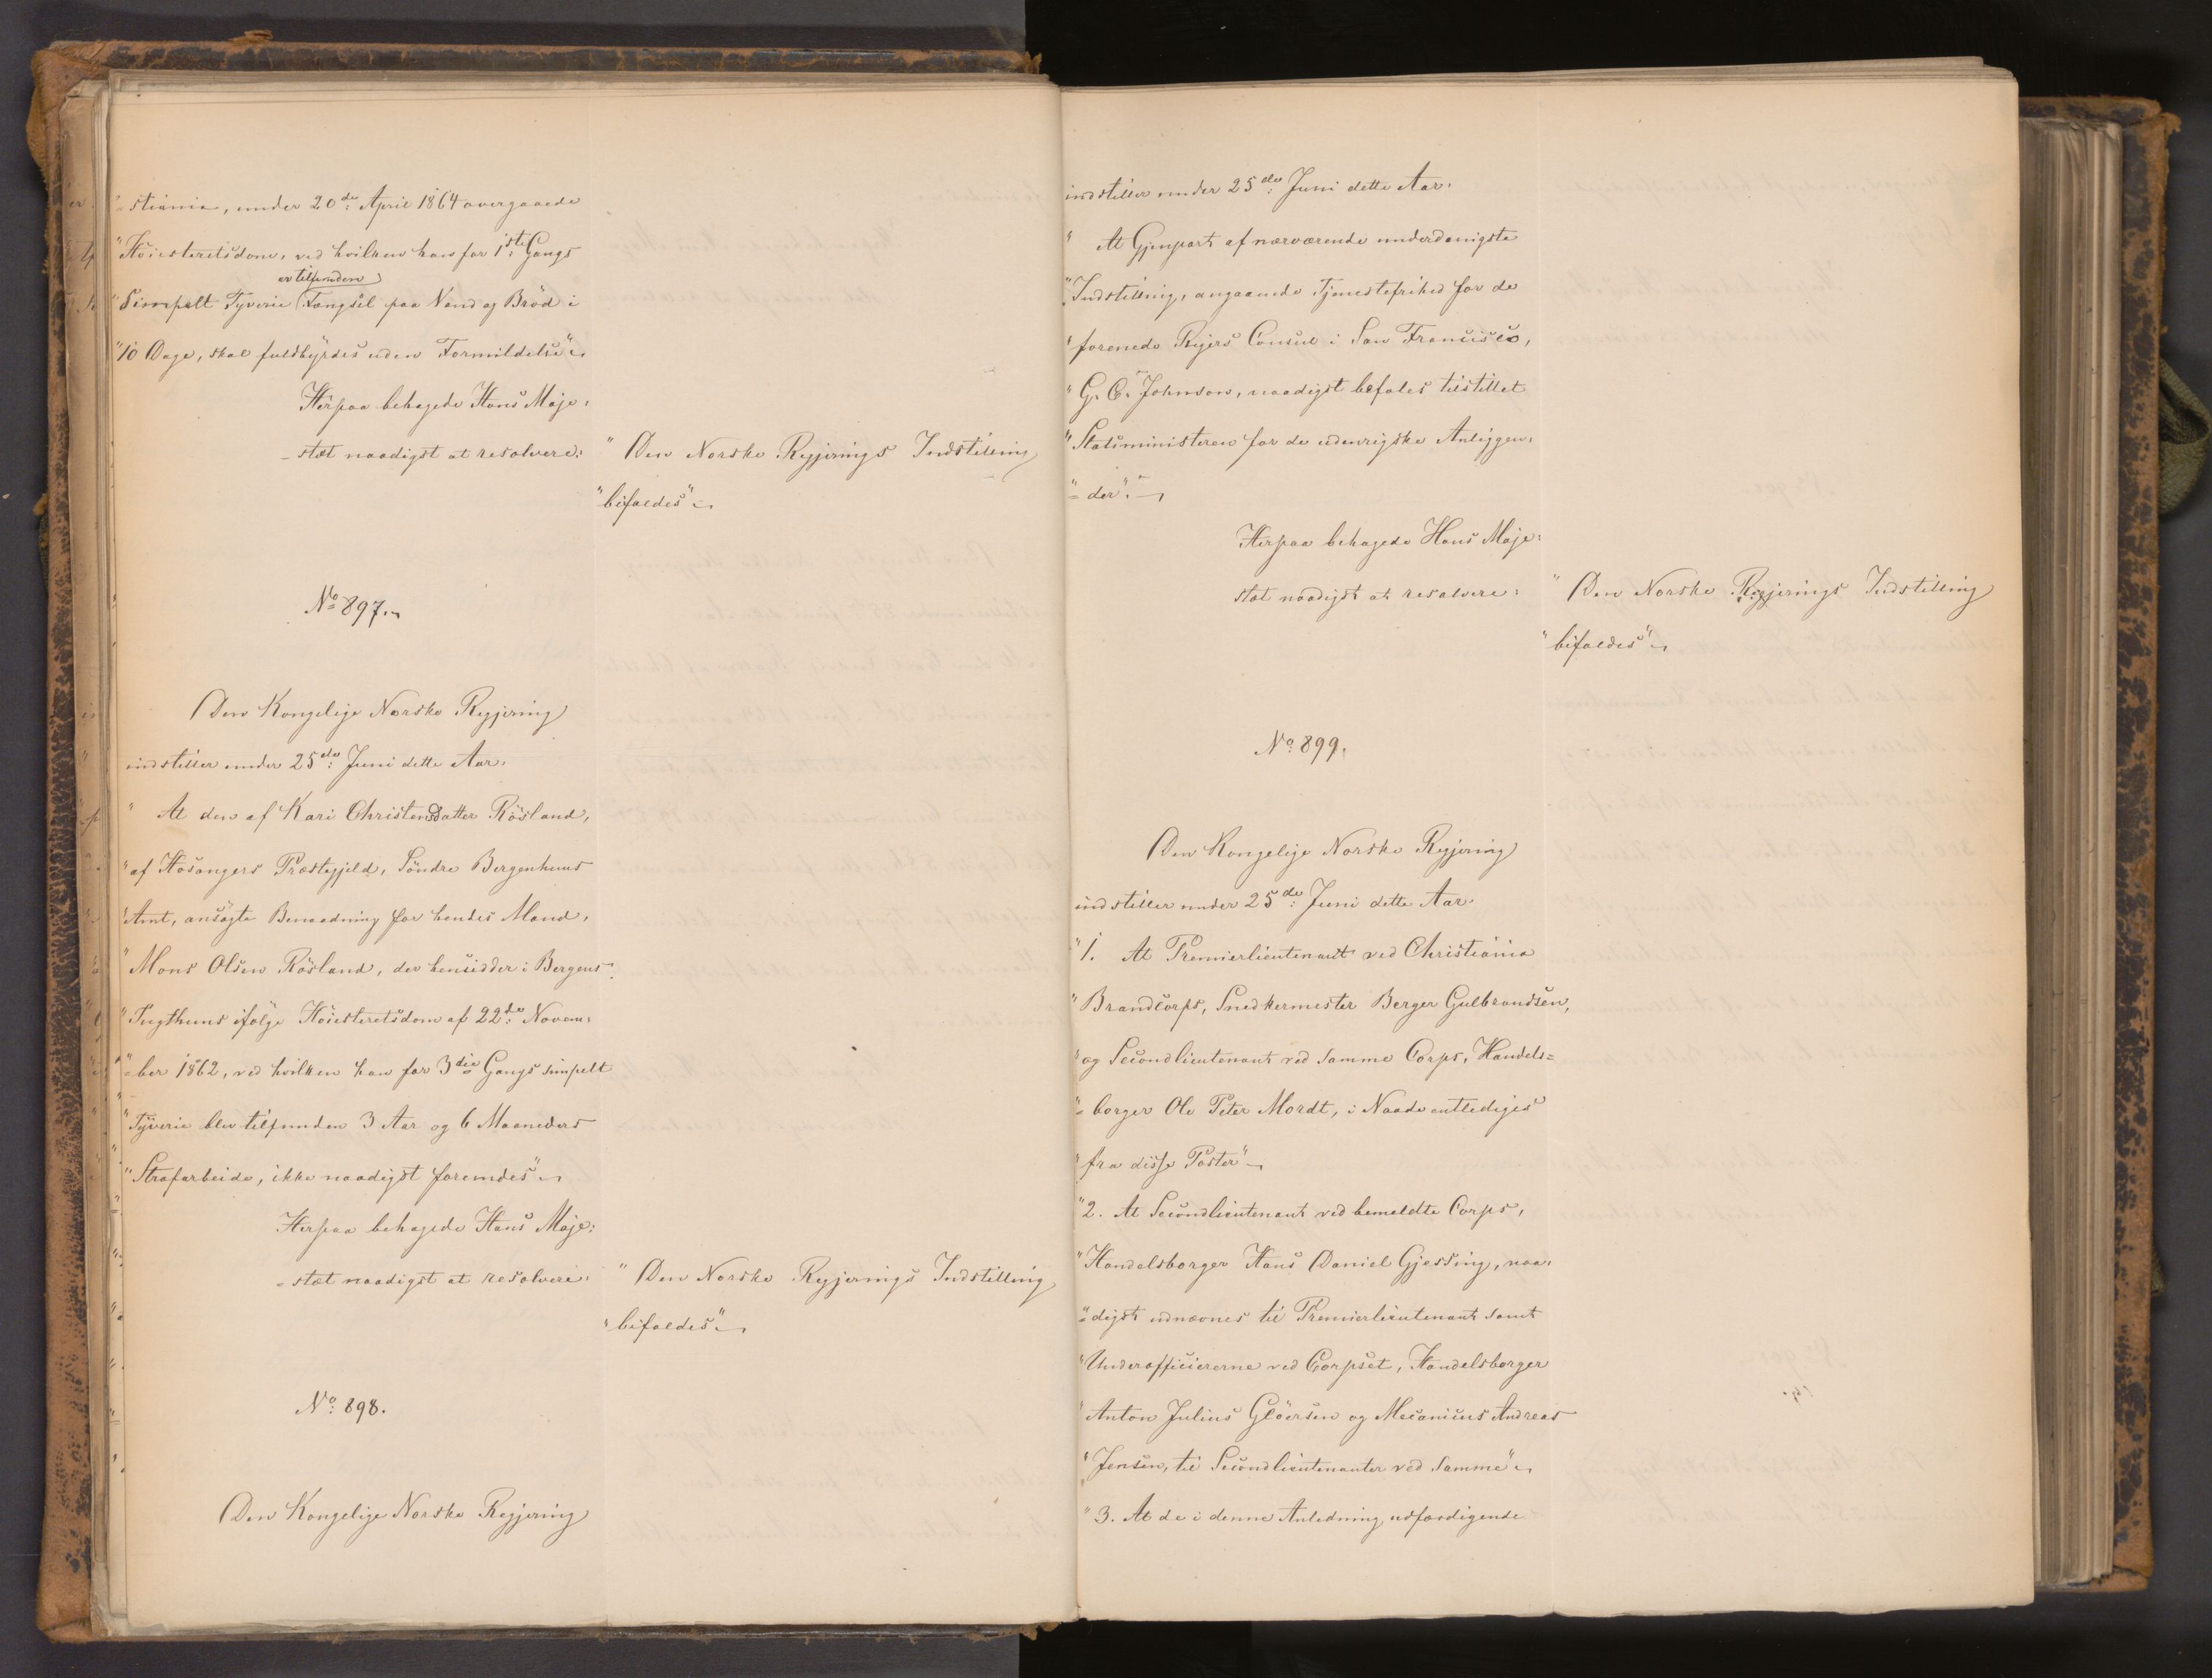 "=stiania, under 20de April 1864 overgaaede
"Höiesteretsdom, ved hvilken han for 1ste Gangs
er tilfunden
"Simpelt Tyverie Fængsel paa Vand og Bröd i
"10 Dage, skal fuldbyrdes uden Formildelse".
Herpaa behagede Hans Maje=
=stæt naadigst at resolvere: "Den Norske Regjerings Indstilling
"bifaldes".
No 897.
Den Kongelige Norske Regjering
indstiller under 25de Juni dette Aar.
"At den af Kari Christensdatter Rösland,
"af Hosangers Præstegjeld, Söndre Bergenhuus
"Amt, ansögte Benaadning for hendes Mand,
"Mons Olsen Rösland, der hensidder i Bergens
"Tugthuus ifölge Höiesteretsdom af 22de Novem=
"=ber 1862, ved hvilken han for 3die Gangs simpelt
"Tyverie blev tilfunden 3 Aar og 6 Maaneders
"Strafarbeide, ikke naadigst foreendes".
Herpaa behagede Hans Maje=
=stæt naadigst at resolvere: "Den Norske Regjerings Indstilling
"bifaldes".
No 898.
Den Kongelige Norske Regjering
indstiller under 25de Juni dette Aar.
"At Gjenpart af nærværende underdanigste
"Indstilling, angaaende Tjenestefrihed for de
"forenede Rigers Consul i San Francisco,
"G. C. Johnson, naadigst befales tilstillet
"Statsministeren for de udenrigske Anliggen=
"=der".
Herpaa behagede Hans Maje=
stæt naadigst at resolvere: "Den Norske Regjerings Indstilling
"bifaldes".
No 899.
Den Kongelige Norske Regjering
indstiller under 25de Juni dette Aar.
"1. At Premierlieutenant ved Christiania
"Brandcorps, Snedkermester Berger Gulbrandsen,
"og Secondlieutenant ved samme Corps, Handels=
"=borger Ole Peter Mordt, i Naade entlediges
"fra disse Poster".
"2. At Secondlieutenant ved bemeldte Corps,
"Handelsborger Hans Daniel Gjessing, naa=
"=digst udnævnes til Premierlieutenant samt
"Underofficiererne ved Corpset, Handelsborger
"Anton Julius Glöersen og Mecanicus Andreas
"Jensen, til Secondlieutenanter ved samme".
"3. At de i denne Anledning udfærdigende